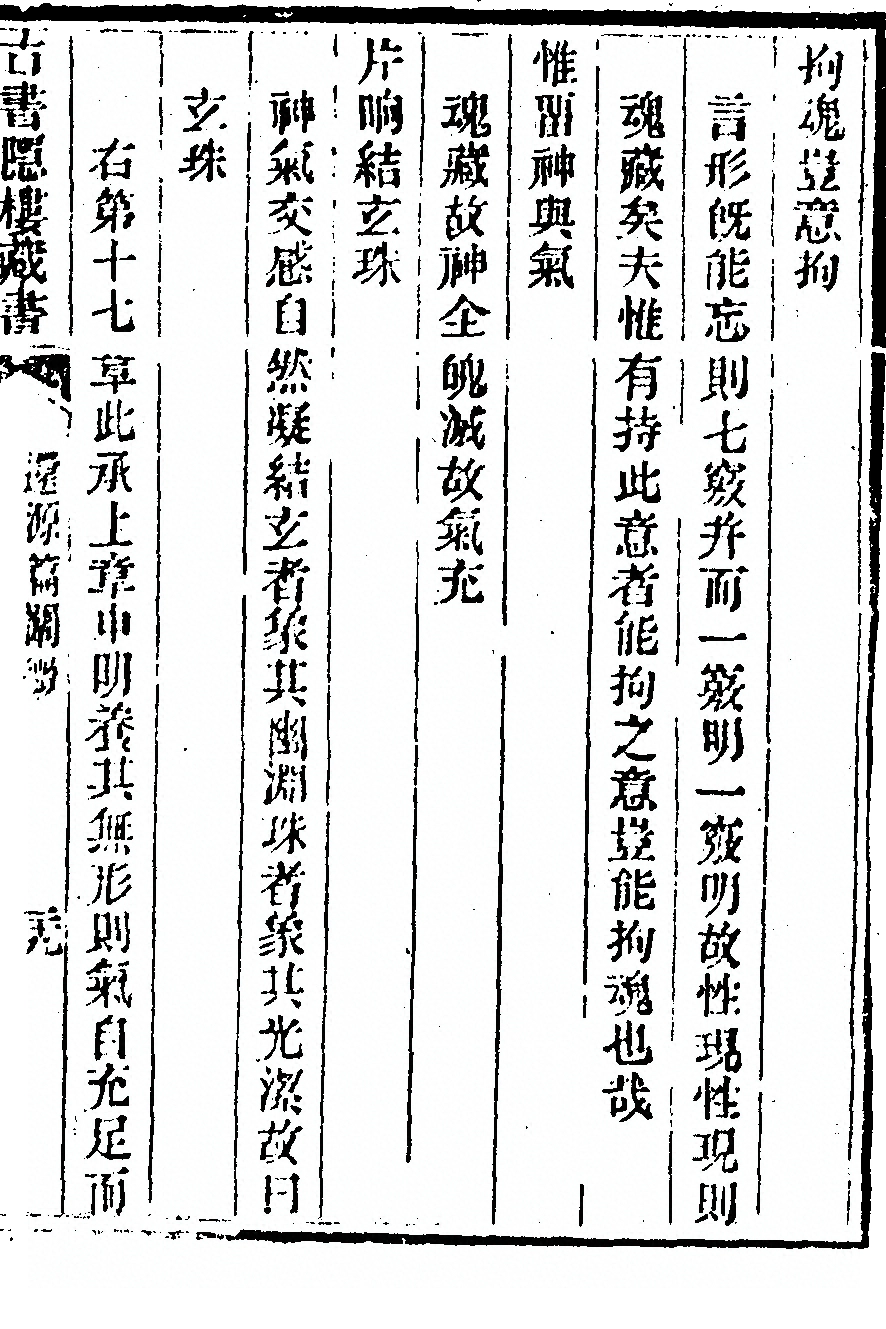 拘魂豈意拘
言形旣能忘則七竅并而一竅明一竅明故性現性現則
魂藏矣夫惟有持此意者能拘之意豈能拘魂也哉
惟畱神與氣
魂藏故神全魄滅故氣充
片晌結玄珠
神氣交感自然凝結玄者象其幽淵珠者象其光潔故曰
玄珠
右第十七章此承上章申明養其無形則氣自充足而
古書隱樓藏書
還源篇闡微